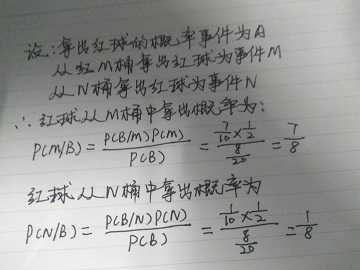 设:拿出红球的概率事件为A
从红M桶拿出红球为事件M
从N桶拿出红球为事件N
∴红球从M桶中拿出概率为:
P(M/B) = P(B/M)P(M) / P(B) = (7/10 × 1/2) / (8/20) = 7/8
红球从N桶中拿出概率为
P(N/B) = P(B/N)P(N) / P(B) = (1/10 × 1/2) / (8/20) = 1/8